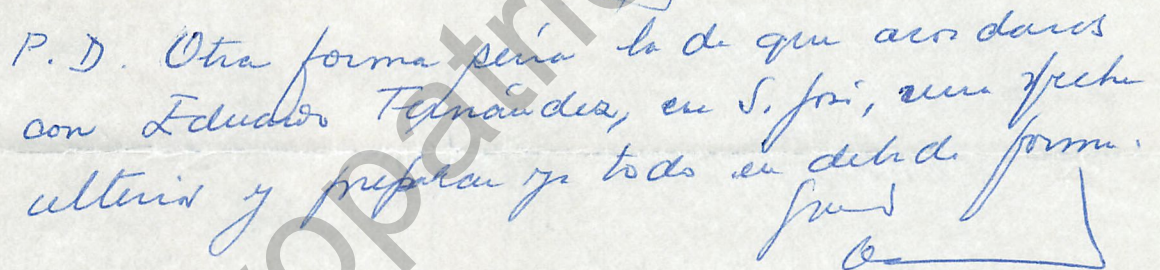 P.D. Otra forma sería la de que acordases
con Eduardo Fernández, en S. José, una fecha
ulterior y preparar ya todo en debida forma.